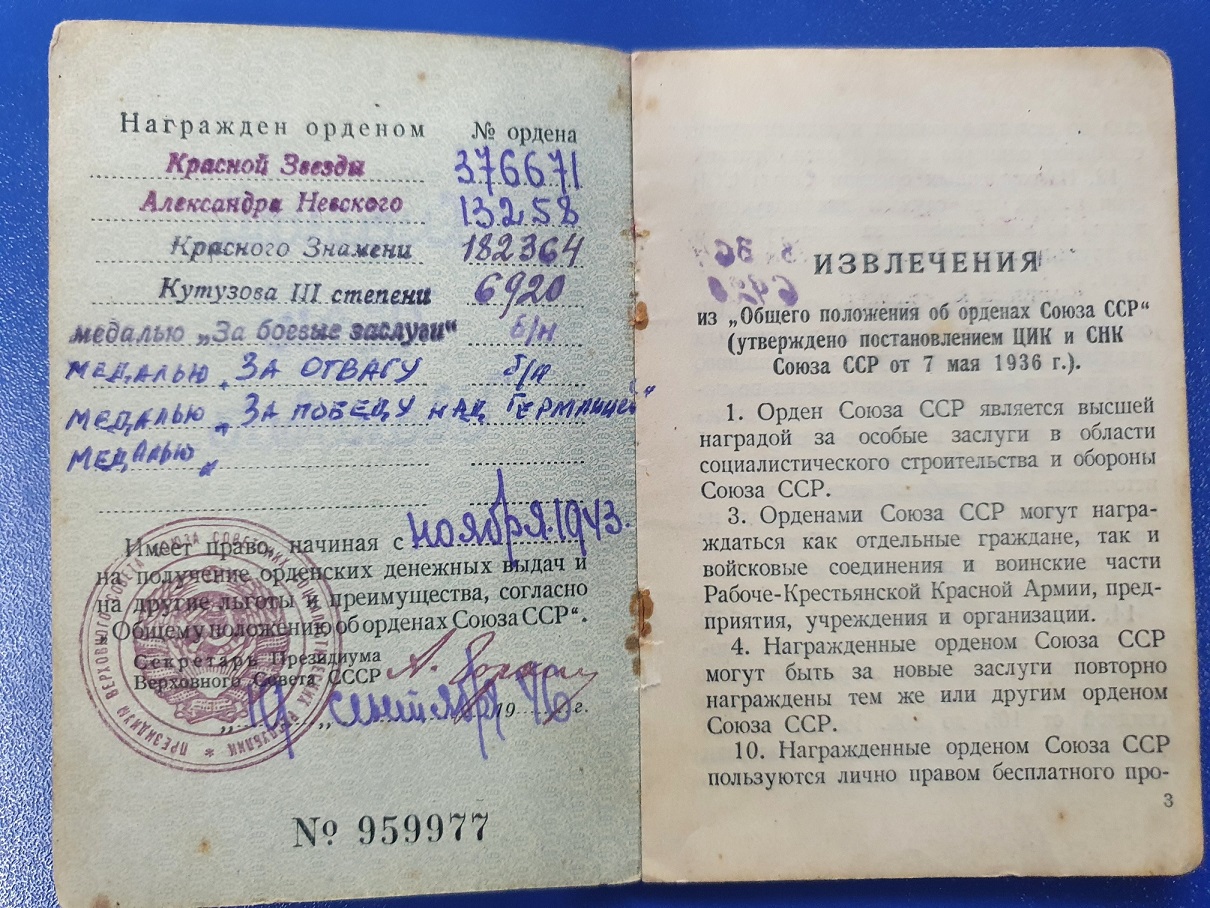 Награжден орденом № ордена
Красной Звезды 376671
Александра Невского 13258
Красного Знамени 182364
Кутузова III степени 6920
медалью „За боевые заслуги“ б/н
МЕДАЛЬЮ „ЗА ОТВАГУ б/н
МЕДАЛЬЮ „ЗА ПОБЕДУ НАД ГЕРМАНИЕЙ“
МЕДАЛЬЮ „
Имеет право, начиная с ноября 1943.
на получение орденских денежных выдач и
на другие льготы и преимущества, согласно
„Общему положению об орденах Союза ССР“.
Секретарь Президиума
Верховного Совета СССР
„19 „ сентября 1946 г.
№ 959977
ПРЕЗИДИУМ ВЕРХОВНОГО СОВЕТА СОЮЗА СОВЕТСКИХ
ИЗВЛЕЧЕНИЯ
из „Общего положения об орденах Союза ССР“
(утверждено постановлением ЦИК и СНК
Союза ССР от 7 мая 1936 г.).
1. Орден Союза ССР является высшей
наградой за особые заслуги в области
социалистического строительства и обороны
Союза ССР.
3. Орденами Союза ССР могут награ-
ждаться как отдельные граждане, так и
войсковые соединения и воинские части
Рабоче-Крестьянской Красной Армии, пред-
приятия, учреждения и организации.
4. Награжденные орденом Союза ССР
могут быть за новые заслуги повторно
награждены тем же или другим орденом
Союза ССР.
10. Награжденные орденом Союза ССР
пользуются лично правом бесплатного про-
3